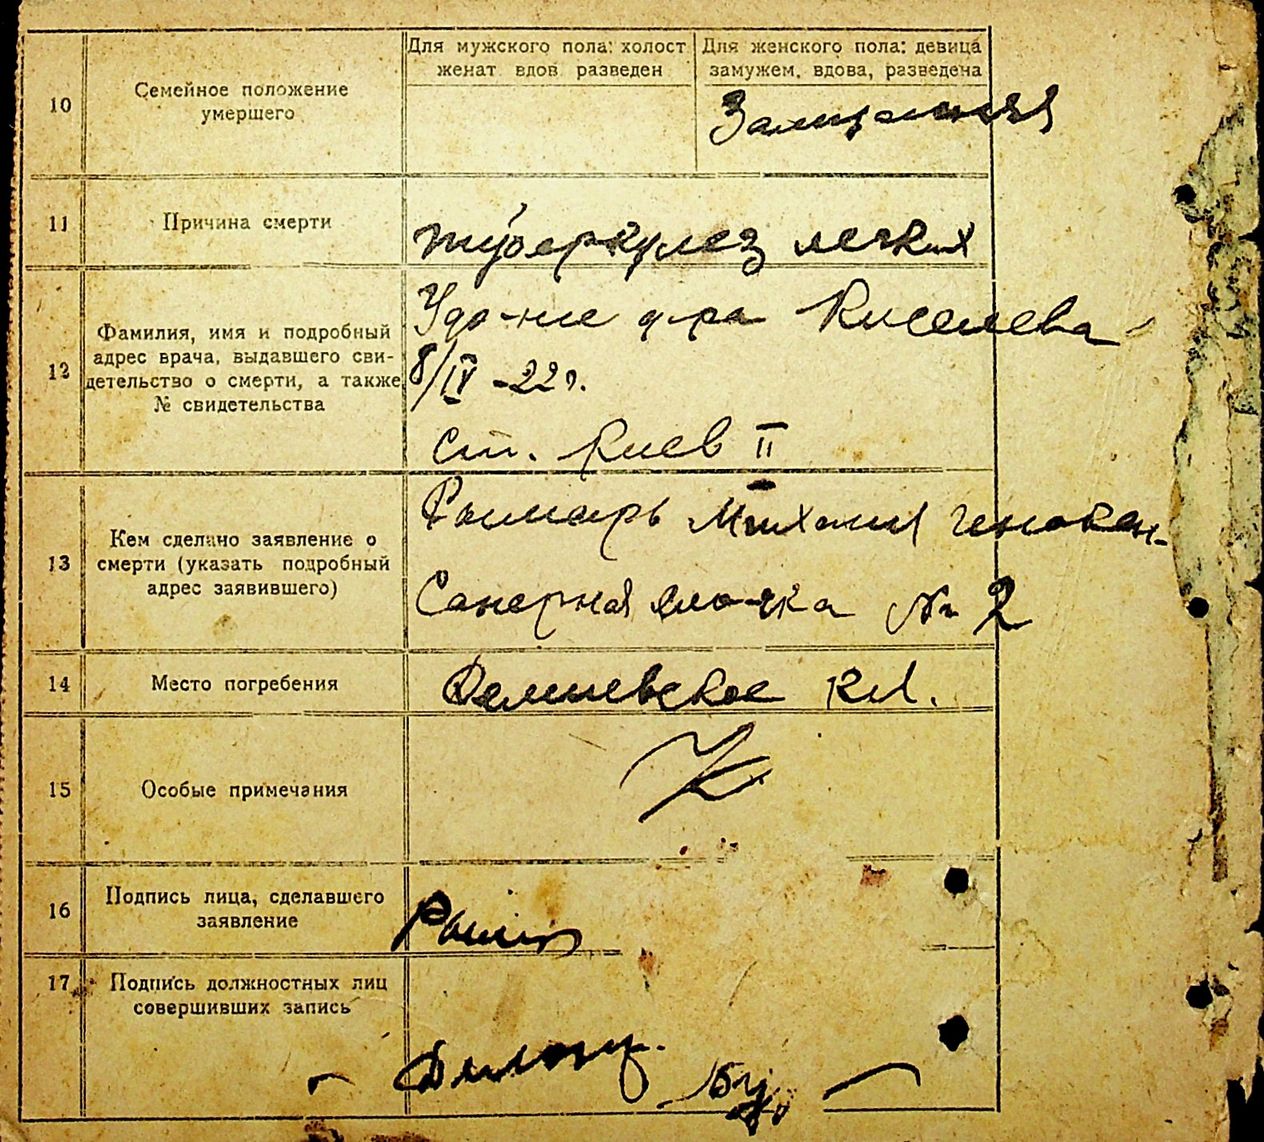 Для мужского пола: холост
женат вдов разведен
Для женского пола: девица
замужем, вдова, разведена
10
Семейное положение
умершего
11
Причина смерти
туберкулез легких
12
Фамилия, имя и подробный
адрес врача, выдавшего сви-
детельство о смерти, а также
№ свидетельства
Удо-ние д-ра Киселева
8/IV -22 г.
ст. Киев II
13
Кем сделано заявление о
смерти (указать подробный
адрес заявившего)
Рымарь Михаил
Саперная No 2
14
Место погребения
Демиевское кл.
15
Особые примечания
16
Подпись лица, сделавшего
заявление
17
Подпись должностных лиц
совершивших запись